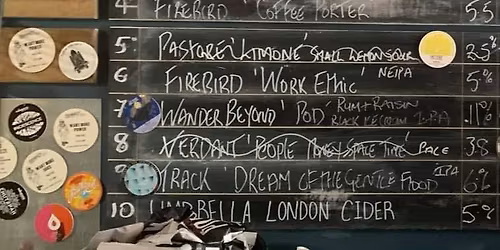 4 FIREBIRD 'COFFEE PORTER 5.5
5 PASTORE 'LIMONE' SMALL LEMON SOUR 2.5%
6 FIREBIRD 'WORK ETHIC' NEIPA 5%
7 WANDER BEYOND 'POD' RUM + RAISIN 11%
BLACK ICE CREAM IPA
8 VERDANT 'PEOPLE TIME' PALE 3.8
9 TRACK 'DREAM OF THE GENTLE FLOOD' IPA 6%
10 UMBRELLA LONDON CIDER 5%